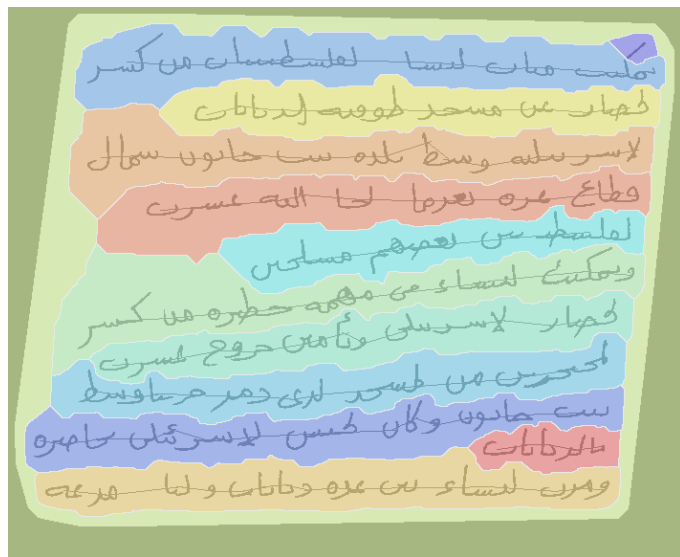 تمكنت مئات النساء الفلسطينيات من كسر
الحصار عن مسجد طوقته الدبابات
الاسرائيلية وسط بلدة بيت حانون شمال
قطاع غزة بعدما لجا اليه عشرات
الفلسطينيين بعضهم مسلحين
وتمكنت النساء في مهمة خطيرة من كسر
الحصار الاسرائيلي وتأمين خروج عشرات
المحتجزين من المسجد الذي دمر جزئيا وسط
بيت حانون وكان الجيش الاسرائيلي يحاصره
بالدبابات
ومرت النساء بين عدة دبابات واليات مدرعة